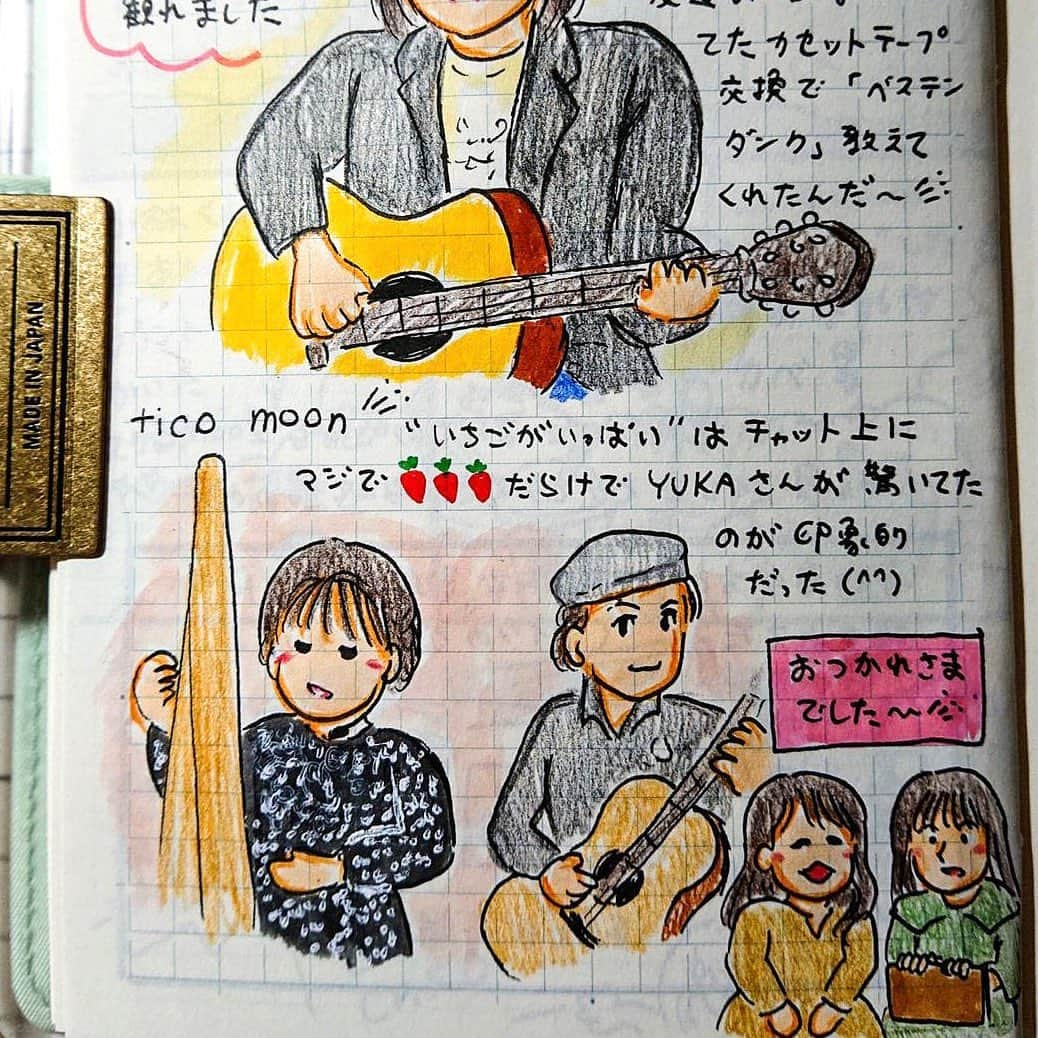 観れました
てたカセットテープ
交換で「ベステン
ダンク」教えて
くれたんだ〜
MADE IN JAPAN
tico moon
"いちごがいっぱい"は チャット上に
マジで🍓🍓🍓だらけで YUKAさんが 驚いてた
のが 印象的
だった(^^)
おつかれさま
でした〜